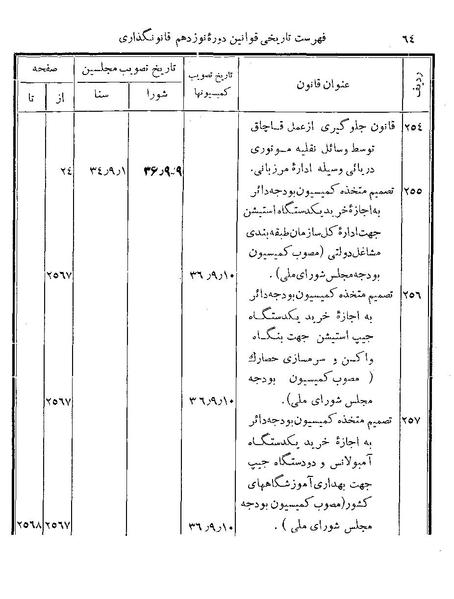 ۶۴
فهرست تاریخی قوانین دورهٔ نوزدهم قانونگذاری
ردیف
عنوان قانون
تاریخ تصویب کمیسیونها
تاریخ تصویب مجلسین
شورا
سنا
صفحه
از
تا
۲۵۴
قانون جلوگیری ازعمل قاچاق
توسط وسائل نقلیه موتوری
دریائی وسیله ادارهٔ مرزبانی.
۳۶٫۹٫۹
۳۴٫۹٫۱
۲۴
۲۵۵
تصمیم متخذه کمیسیون بودجه دائر
به اجازهٔ خرید یکدستگاه استیشن
جهت ادارهٔ کل سازمان طبقه بندی
مشاغل دولتی (مصوب کمیسیون
بودجه مجلس شورای ملی).
۳۶٫۹٫۱۰
۲۵۶۷
۲۵۶
تصمیم متخذه کمیسیون بودجه دائر
به اجازهٔ خرید یکدستگاه
جیپ استیشن جهت بنگاه
واکسن و سرمسازی حصارك
( مصوب کمیسیون بودجه
مجلس شورای ملی).
۳۶٫۹٫۱۰
۲۵۶۷
۲۵۷
تصمیم متخذه کمیسیون بودجه دائر
به اجازهٔ خرید یکدستگاه
آمبولانس و دودستگاه جیپ
جهت بهداری آموزشگاههای
کشور(مصوب کمیسیون بودجه
مجلس شورای ملی ).
۳۶٫۹٫۱۰
۲۵۶۷
۲۵۶۸